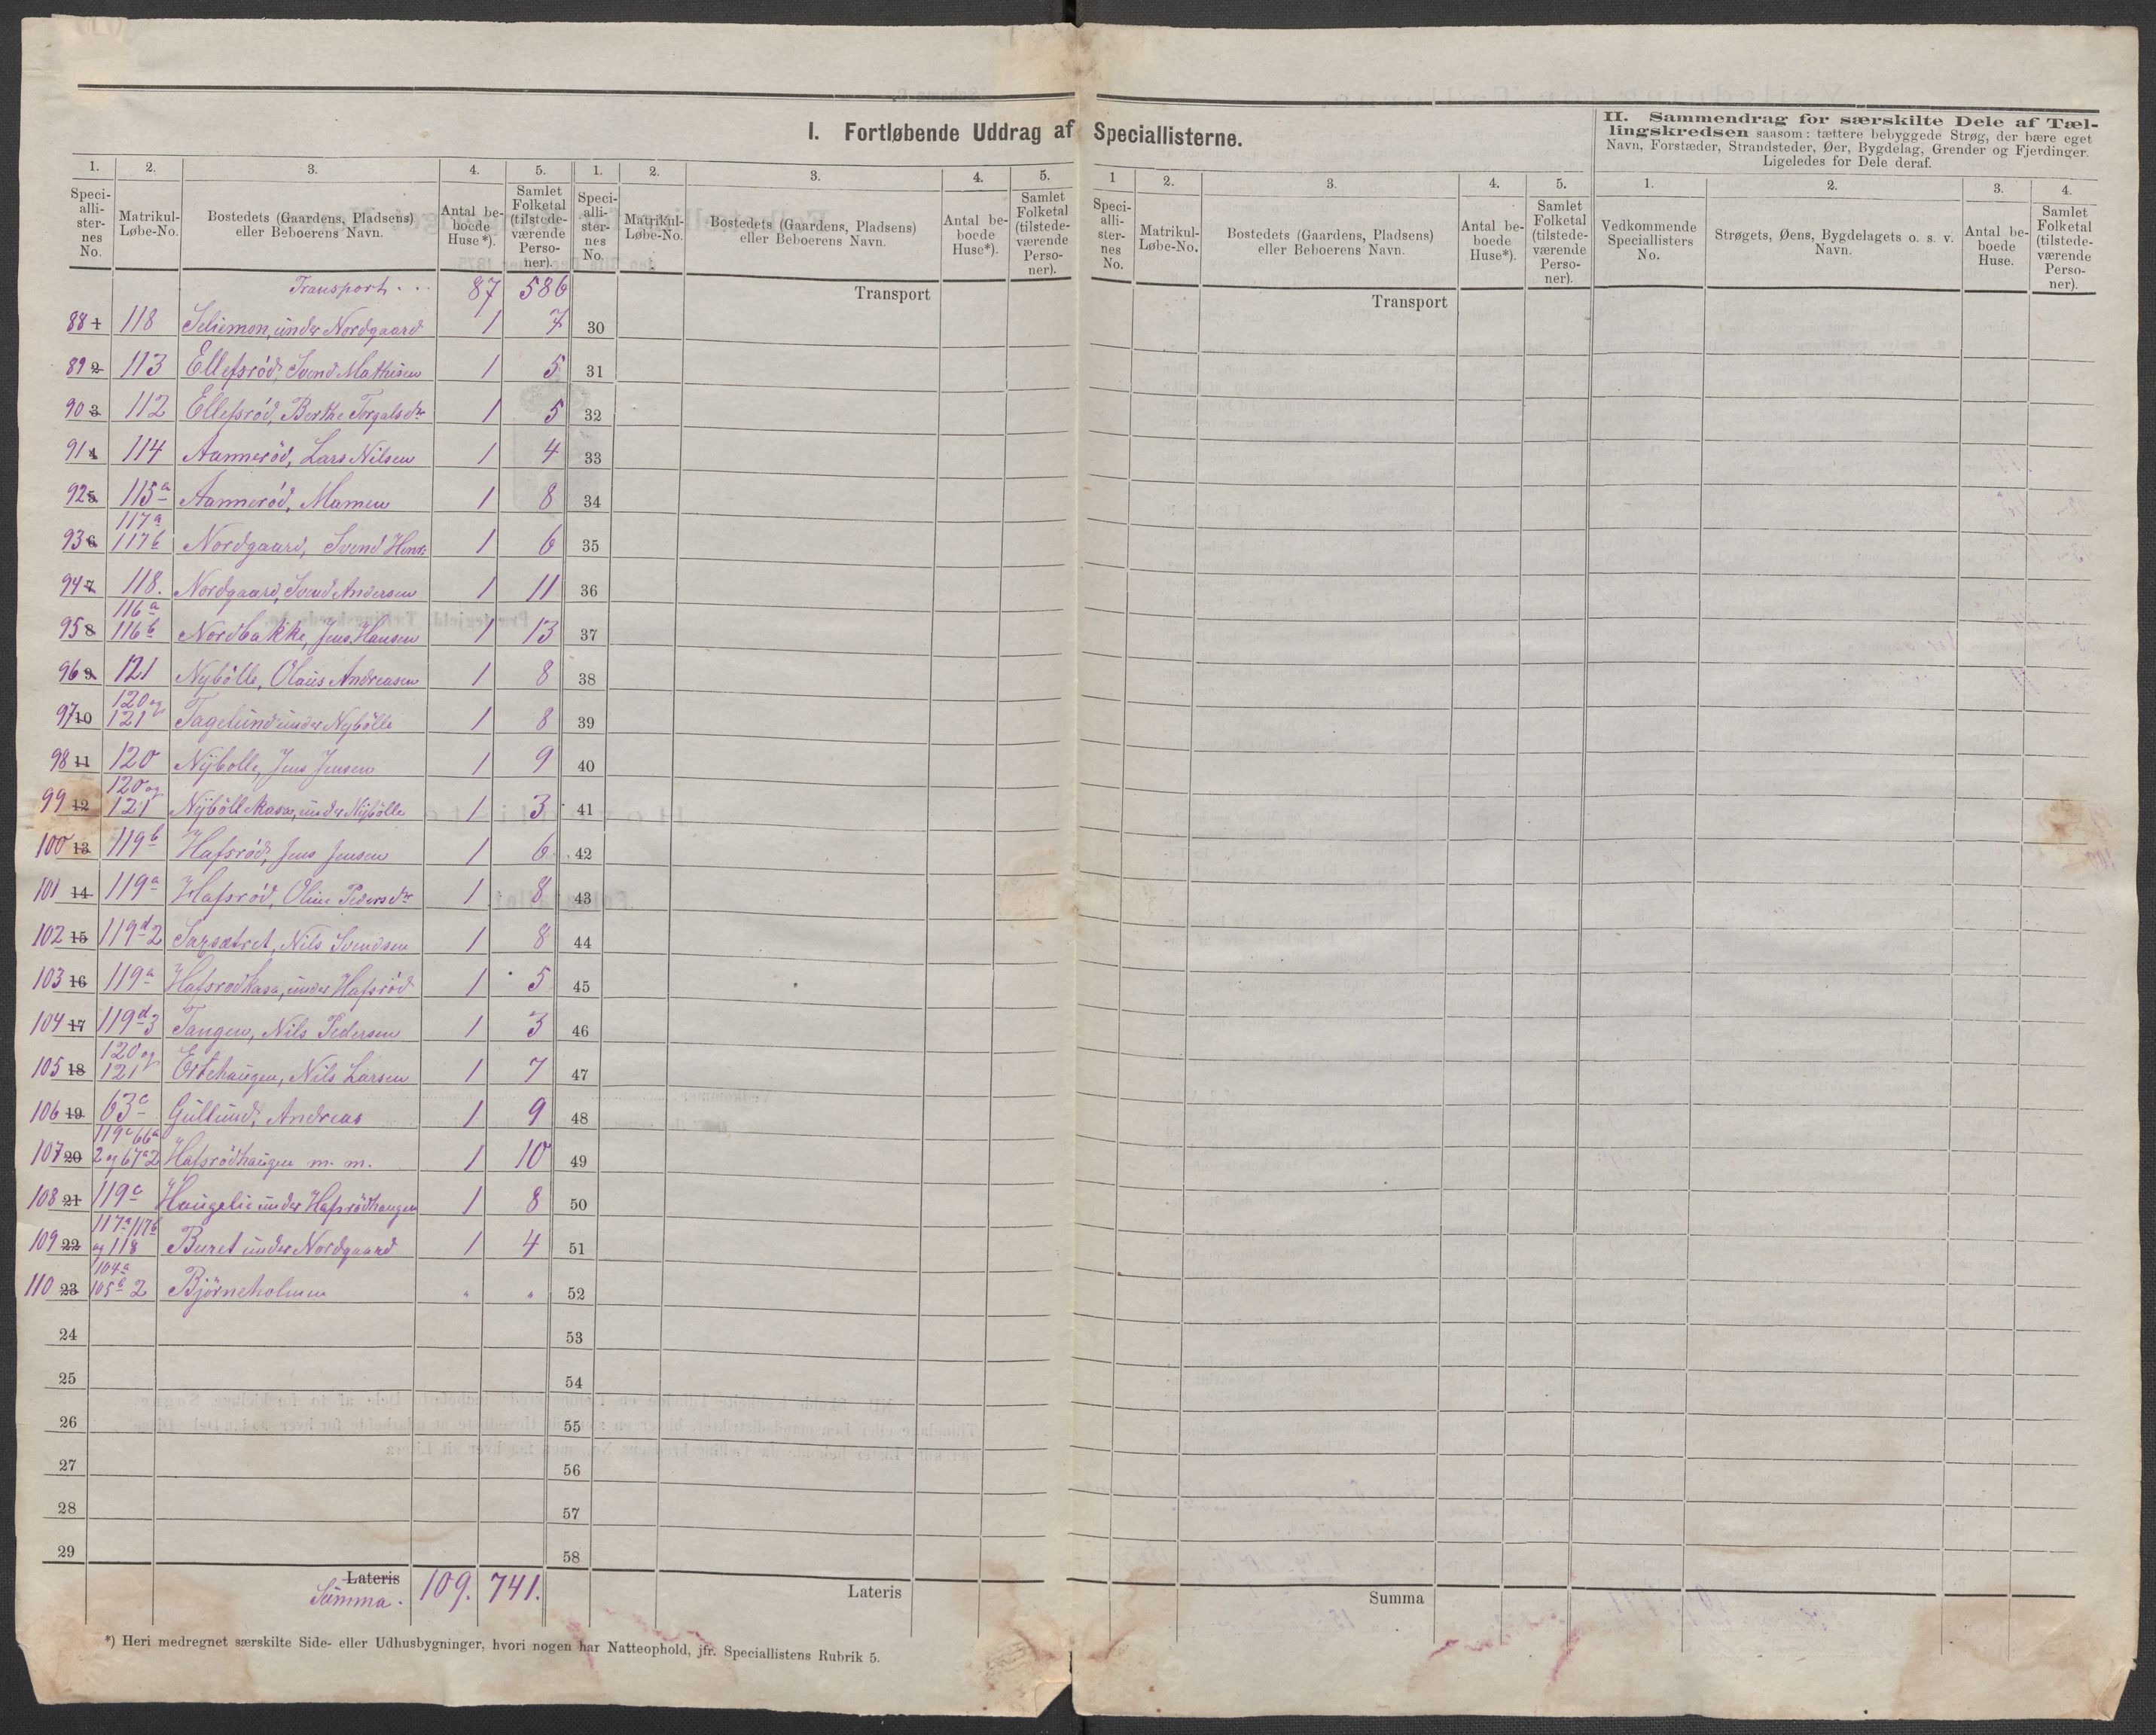 I. Fortløbende Uddrag af Speciallisterne.
II. Sammendrag for særskilte Dele af Tæl-
lingskredsen saasom: tættere bebyggede Strøg, der bære eget
Navn, Forstæder, Strandsteder, Øer, Bygdelag, Grender og Fjerdinger.
Ligeledes for Dele deraf.
1. 2. 3. 4. 5. 1. 2. 3. 4. 5. 1 2. 3. 4. 5. 1. 2. 3. 4.
Speci-
alli-
ster-
nes
No.
Matrikul-
Løbe-No.
Bostedets (Gaardens, Pladsens)
eller Beboerens Navn.
Antal be-
boede
Huse*).
Samlet
Folketal
(tilstede-
værende
Perso-
ner).
Speci-
alli-
ster-
nes
No.
Matrikul-
Løbe-No.
Bostedets (Gaardens, Pladsens)
eller Beboerens Navn.
Antal be-
boede
Huse*).
Samlet
Folketal
(tilstede-
værende
Perso-
ner).
Speci-
alli-
ster-
nes
No.
Matrikul-
Løbe-No.
Bostedets (Gaardens, Pladsens)
eller Beboerens Navn.
Antal be-
boede
Huse*).
Samlet
Folketal
(tilstede-
værende
Perso-
ner).
Vedkommende
Speciallisters
No.
Strøgets, Øens, Bygdelagets o. s. v.
Navn.
Antal be-
boede
Huse.
Samlet
Folketal
(tilstede-
værende
Perso-
ner).
Transport . . . 87 586 Transport Transport
88 1 118 under Nordgaard 1 7 30
89 2 113 Ellefsrød, Svend Mathisen 1 5 31
90 3 112 Ellefsrød, Berthe Torgalsdr 1 5 32
91 4 114 Aannerød, Lars Nilsen 1 4 33
92 5 115a Aannerød, Mamen 1 8 34
117a
93 6 117b Nordgaard, Svend Henr: 1 6 35
94 7 118. Nordgaard, Svend Andersen 1 11 36
116a
95 8 116b Nordbakke, Jens Hansen 1 13 37
96 9 121 Nybølle, Olaus Andreasen 1 8 38
120 og
97 10 121 Fagelund under Nybølle 1 8 39
98 11 120 Nybolle, Jens Jensen 1 9 40
120 og
99 12 121 Nybøllekasa, under Nybølle 1 3 41
100 13 119b Hafsrød, Jens Jensen 1 6 42
101 14 119a Hafsrød, Oline Pedersdr 1 8 43
102 15 119d2 Nils Svendsen 1 8 44
103 16 119a Hafsrødkasa, under Hafsrød 1 5 45
104 17 119d3 Tangen, Nils Pedersen 1 3 46
120 og
105 18 121 Ertehaugen, Nils Larsen 1 7 47
106 19 63c Gullund, Andreas 1 9 48
119c 66a
107 20 2 og 67a2 Hafsrødhaugen m. m. 1 10 49
108 21 119c Haugelie under Hafsrødhaugen 1 8 50
117a 117b
109 22 og 118 Buret under Nordgaard 1 4 51
104a
110 23 105b 2 Bjørneholmen " " 52
24 53
25 54
26 55
27 56
28 57
29 58
Lateris
Summa. 109. 741. Lateris Summa
*) Heri medregnet særskilte Side- eller Udhusbygninger, hvori nogen har Natteophold, jfr. Speciallistens Rubrik 5.